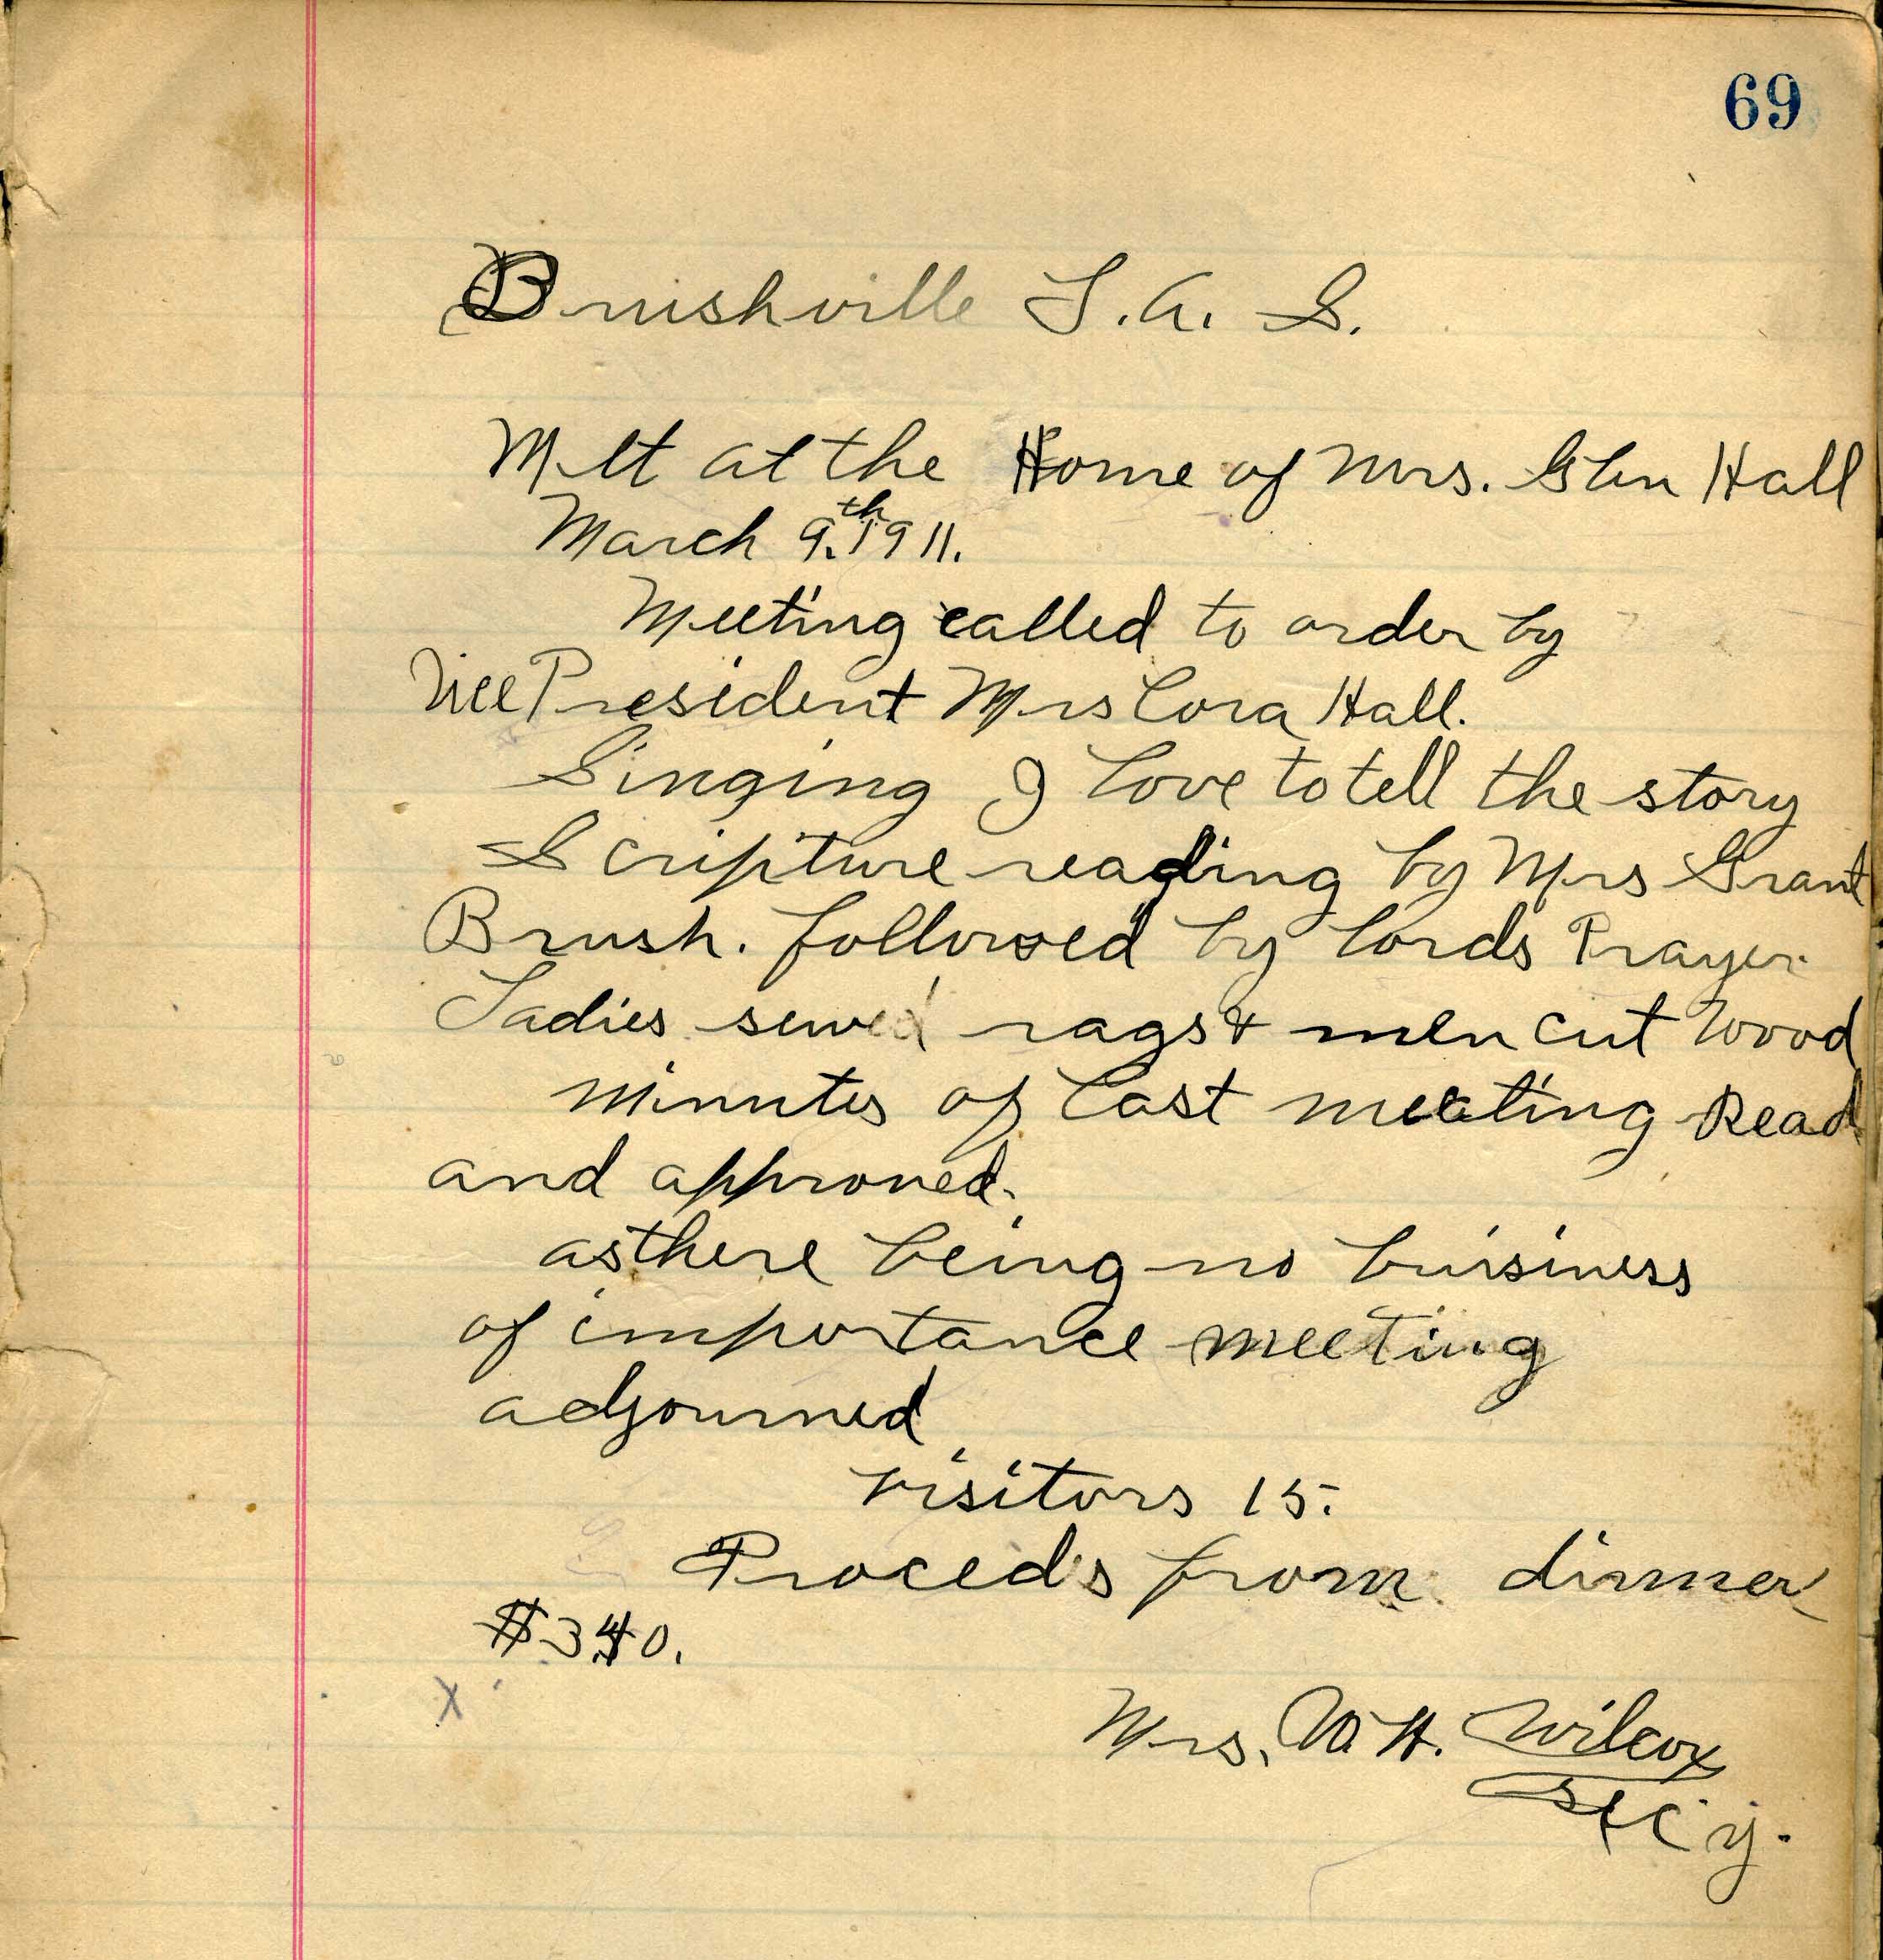 69
Brushville L. A. S.
Met at the Home of Mrs. Glen Hall
March 9.th 1911.
Meeting called to order by
Vice President Mrs Cora Hall.
Singing I love to tell the story
Scripture reading by Mrs Grant
Brush. followed by lords Prayer.
Ladies sewed rags & men cut wood
minutes of last meeting Read
and approved.
as there being no buisiness
of importance meeting
adjourned
visitors 15.
Proceeds from dinner
$3.40.
x
Mrs. W. H. Wilcox
Sec'y.